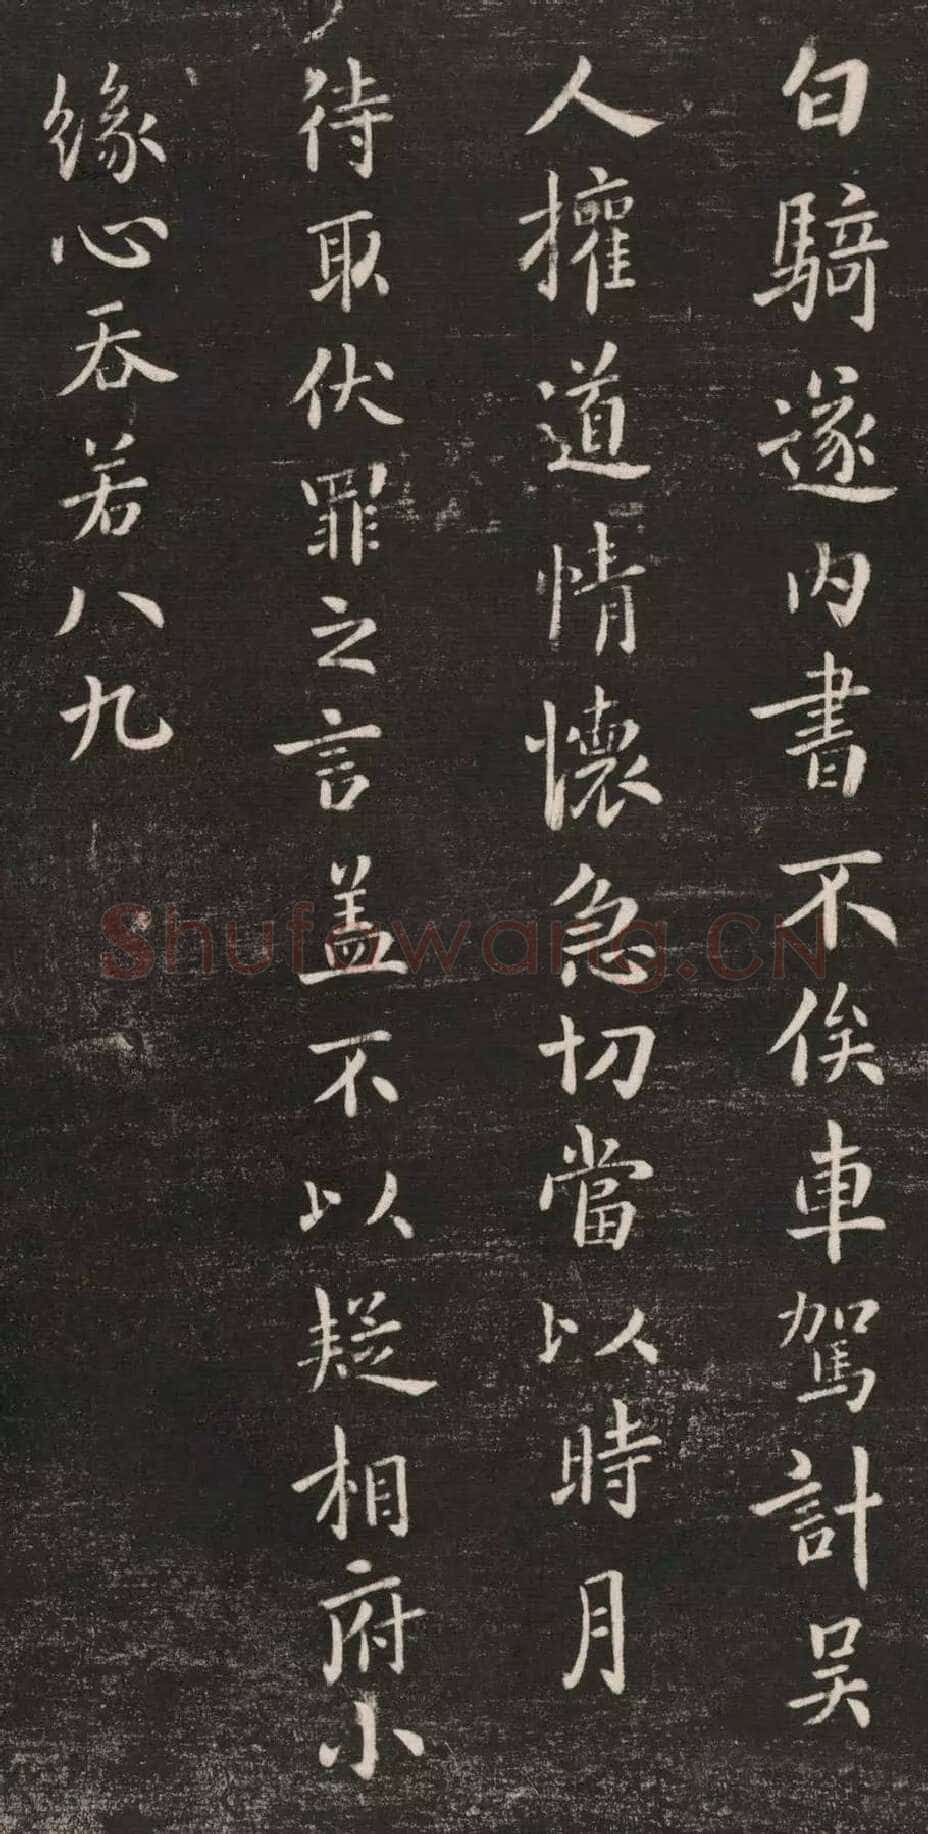 白騎遂內書不俟車駕計吴
人擁道情懷急切當以時月
待取伏罪之言盖不以疑相府小
緣心吞若八九
Shufawang.CN